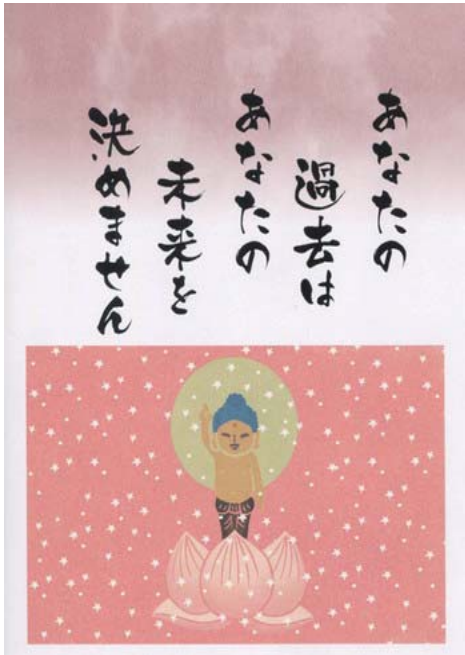 あなたの
過去は
あなたの
未来を
決めません